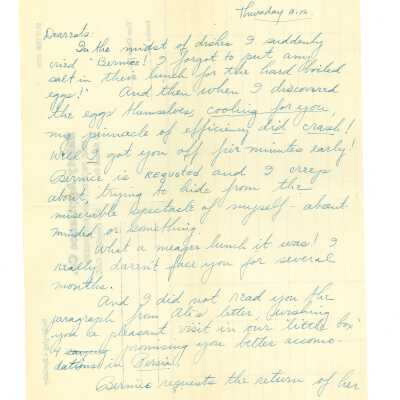 Thursday a.m.
Dearests:
In the midst of dishes I suddenly
cried "Bernice! I forgot to put any
salt in their lunch for the hard boiled
eggs!" And then when I discovered
the eggs themselves, cooling for you,
my pinnacle of efficiency did crash!
Well I got you off five minutes early!
Bernice is and I creep
about, trying to hide from the
miserible spectacle of myself - about
minded or something.
What a meager lunch it was! I
really daren't face you for several
months.
And I did not read you the
paragraph from letter, wishing
you a pleasant visit in our 'little box'
& saying promising you better accomo-
dations in Persia.
Bernice requests the return of her